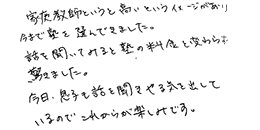 家庭教師というと高いというイメージがあり
今まで塾を選んできました。
話を聞いてみると塾の料金と変わらず
驚きました。
今日、息子も話を聞きやる気を出して
いるのでこれからが楽しみです。